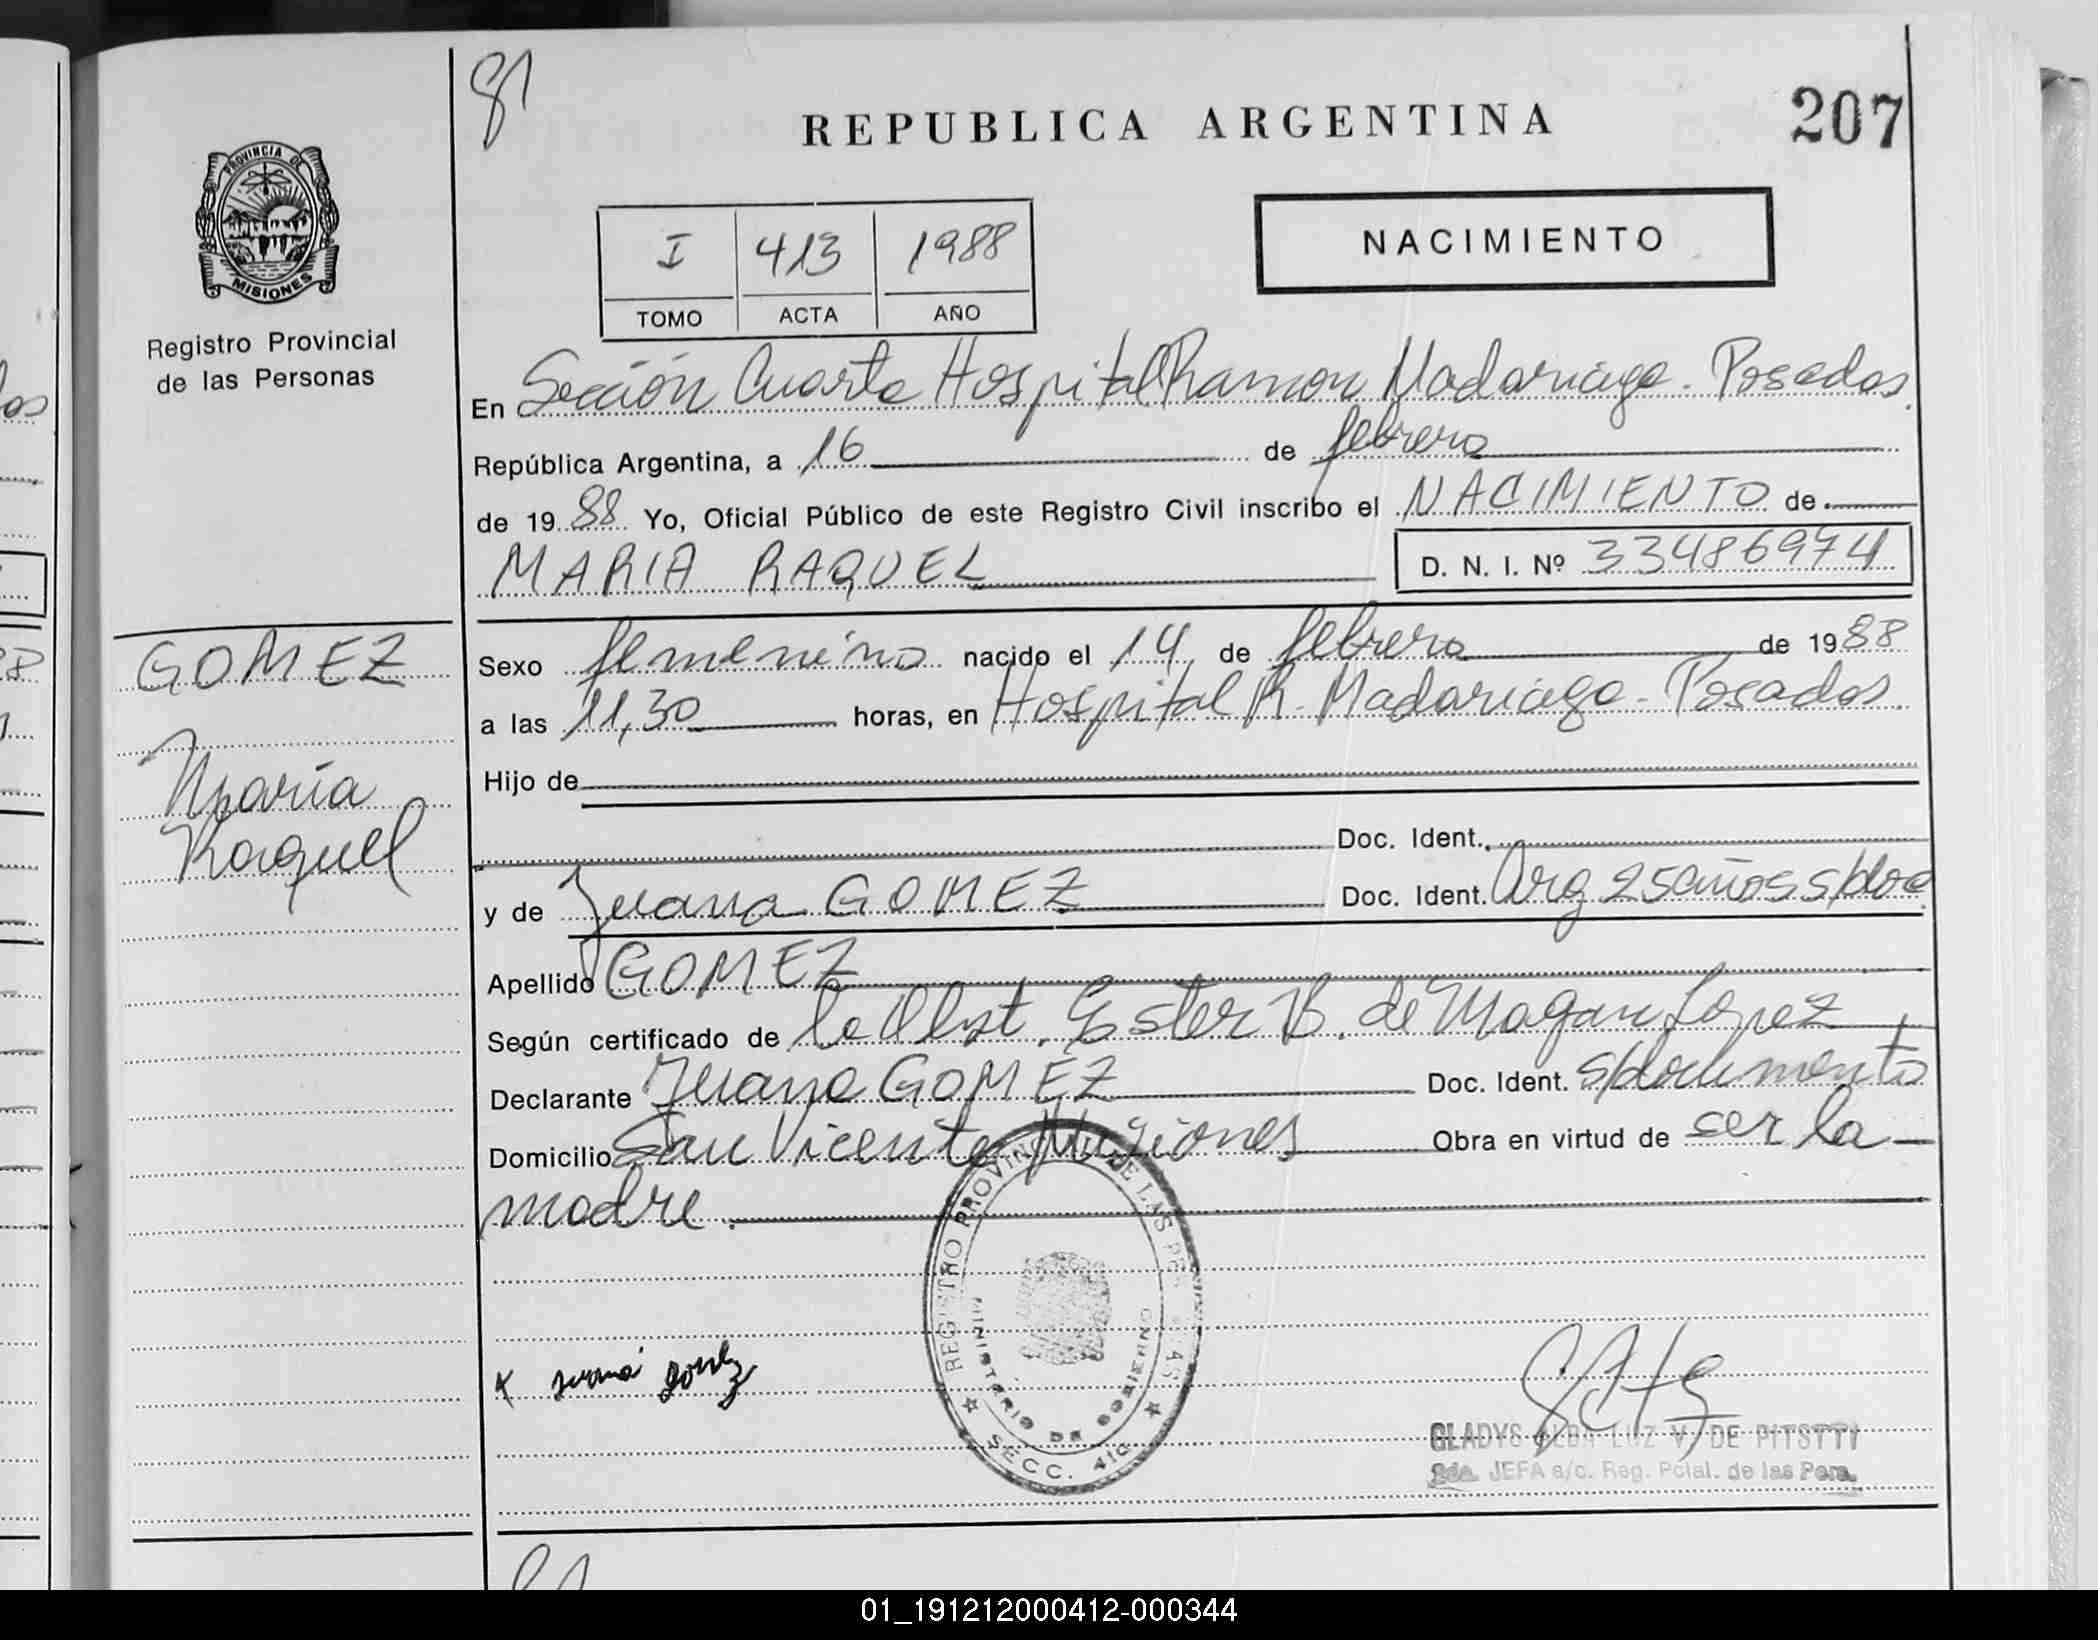 81
REPUBLICA ARGENTINA
207
PROVINCIA DE
MISIONES
Registro Provincial
de las Personas
I 413 1988
TOMO ACTA AÑO
NACIMIENTO
En Sección Cuarta Hospital Ramon Madariaga. Posadas.
República Argentina, a 16 de febrero
de 1988 Yo, Oficial Público de este Registro Civil inscribo el NACIMIENTO de
MARIA RAQUEL D. N. I. Nº 33486974
GOMEZ
María
Raquel
Sexo femenino nacido el 14 de febrero de 1988
a las 11,30 horas, en Hospital R. Madariaga - Posadas.
Hijo de
Doc. Ident.
y de Juana GOMEZ Doc. Ident. Arg 25 años s/doc
Apellido GOMEZ
Según certificado de la Obst. Ester B. de Magan Lopez
Declarante Juana GOMEZ Doc. Ident. s/documento
Domicilio San Vicente Misiones Obra en virtud de ser la
madre.
REGISTRO PROVINCIAL DE LAS PERSONAS
MINISTERIO DE GOBIERNO
SECC. 4ta
x Juana gomez
GLADYS ALBA LUZ V. DE PITSTTI
2da. JEFA a/c. Reg. Pcial. de las Pers.
01_191212000412-000344